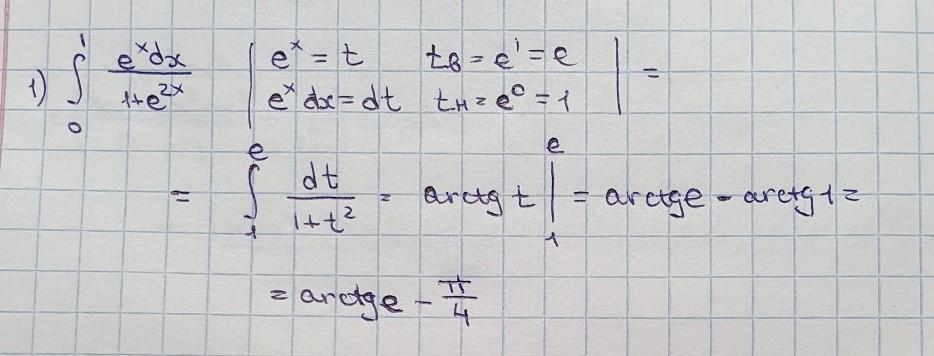 1) ∫₀¹ eˣdx / 1+e²ˣ | eˣ = t t_в = e¹ = e | =
eˣ dx = dt t_н = e⁰ = 1
= ∫₁ᵉ dt / 1+t² = arctg t |₁ᵉ = arctg e - arctg 1 =
= arctg e - π/4